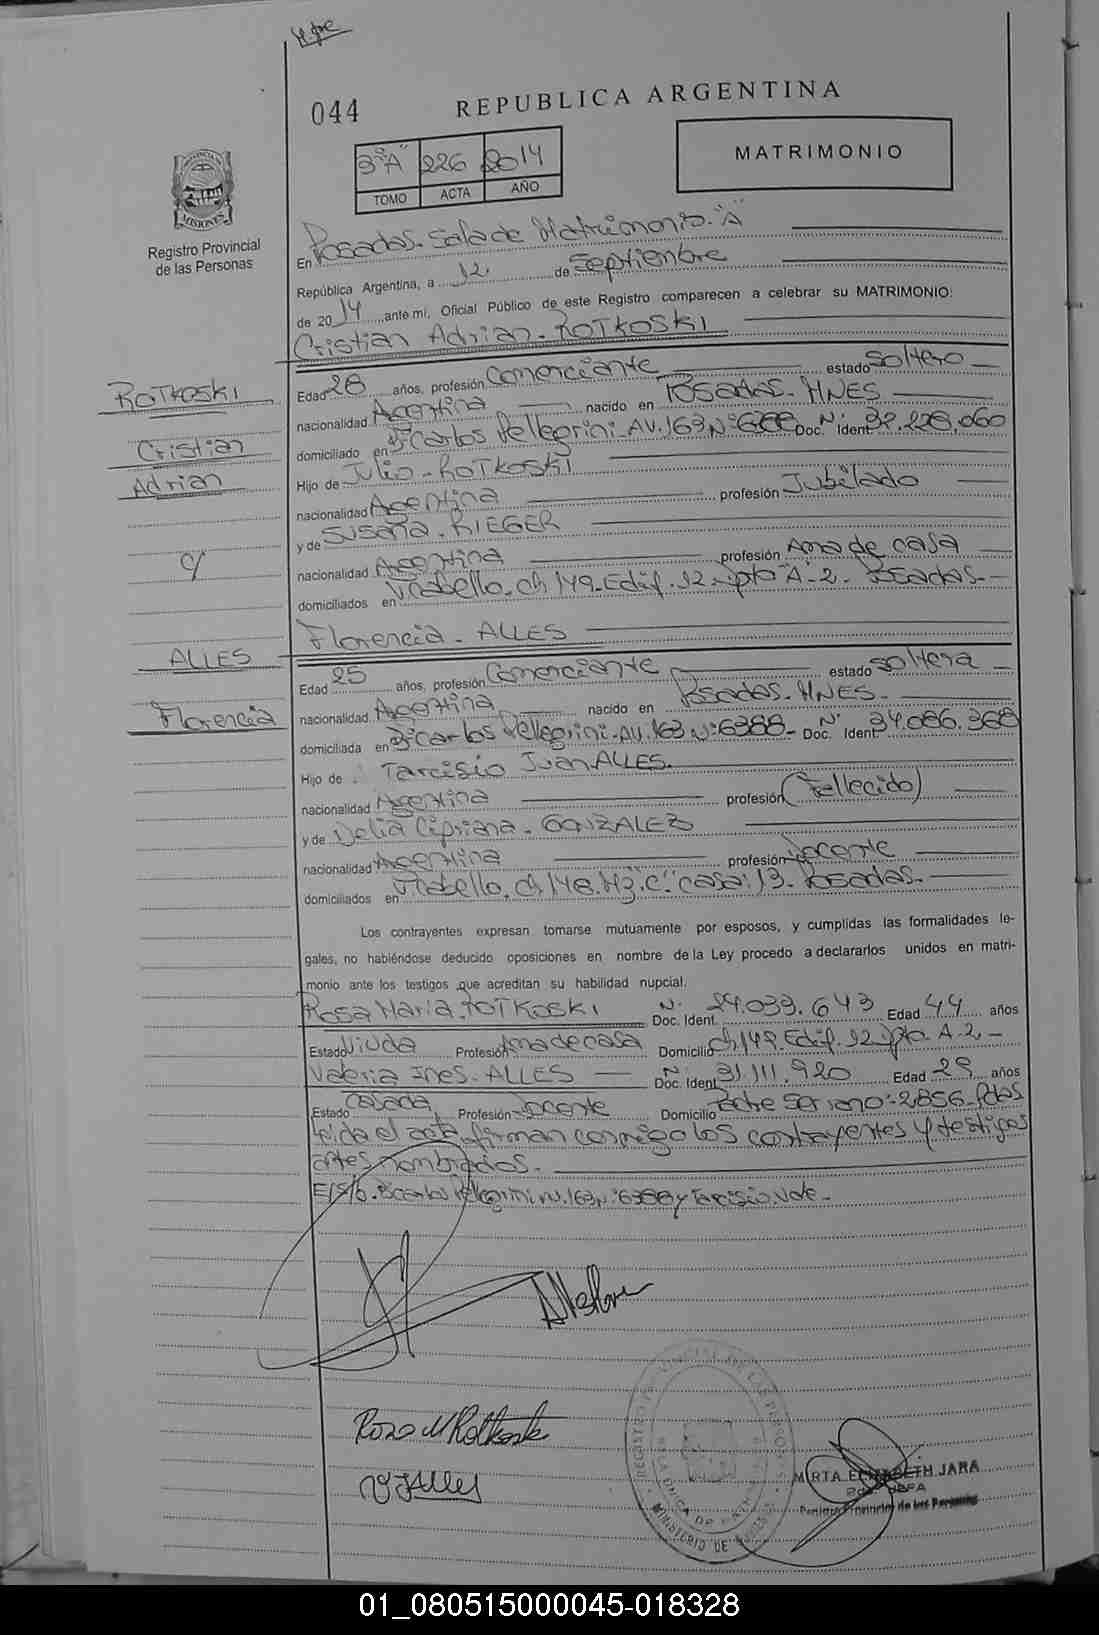 044
REPUBLICA ARGENTINA
3º "A" 226 2014
TOMO ACTA AÑO
MATRIMONIO
MISIONES
Registro Provincial
de las Personas
En Posadas. Sala de Matrimonio. "A"
República Argentina, a 12 de Septiembre
de 2014 ante mí, Oficial Público de este Registro comparecen a celebrar su MATRIMONIO:
Cristian Adrian. ROTKOSKI
ROTKOSKI
Cristian
Adrian
c/
ALLES
Florencia
Edad 28 años, profesión Comerciante estado Soltero
nacionalidad Argentina nacido en Posadas. MNES
domiciliado en Carlos Pellegrini. AV. 163 Nº Doc. Ident Nº 32.228.060
Hijo de Julio. ROTKOSKI
nacionalidad Argentina profesión Jubilado
y de Susana. RIEGER
nacionalidad Argentina profesión Ama de casa
domiciliados en Yrabello. ch 149. Edif. 12. Dpto "A". 2. Posadas.
Florencia. ALLES
Edad 25 años, profesión Comerciante estado Soltera
nacionalidad Argentina nacido en Posadas. MNES.
domiciliada en Carlos Pellegrini. AV. 163 Nº 6388. Doc. Ident Nº 34.086.368
Hijo de Tarcisio Juan ALLES.
nacionalidad Argentina profesión (Fallecido)
y de Delia Cipriana. GONZALEZ
nacionalidad Argentina profesión Docente
domiciliados en Yrabello. ch 148. Mz. "C". casa: 13. Posadas.
Los contrayentes expresan tomarse mutuamente por esposos, y cumplidas las formalidades le-
gales, no habiéndose deducido oposiciones en nombre de la Ley procedo a declararlos unidos en matri-
monio ante los testigos que acreditan su habilidad nupcial.
Rosa Maria. ROTKOSKI Doc. Ident. Nº 24.039.643 Edad 44 años
Estado Viuda Profesión Ama de casa Domicilio ch 149. Edif. 12 Dpto. A. 2.
Valeria Ines. ALLES Doc. Ident Nº 31.111.920 Edad 29 años
Estado Casada Profesión Docente Domicilio Padre Serrano: 2856. Pdas
leida el acta firman conmigo los contrayentes y testigos
antes nombrados.
E/S/b. Carlos Pellegrini AV. 163 Nº 6388 y Tarcisio. Vale.
Rosa M Rotkoski
V I Alles
MIRTA ELIZABETH JARA
Registro Provincial de las Personas
01_080515000045-018328